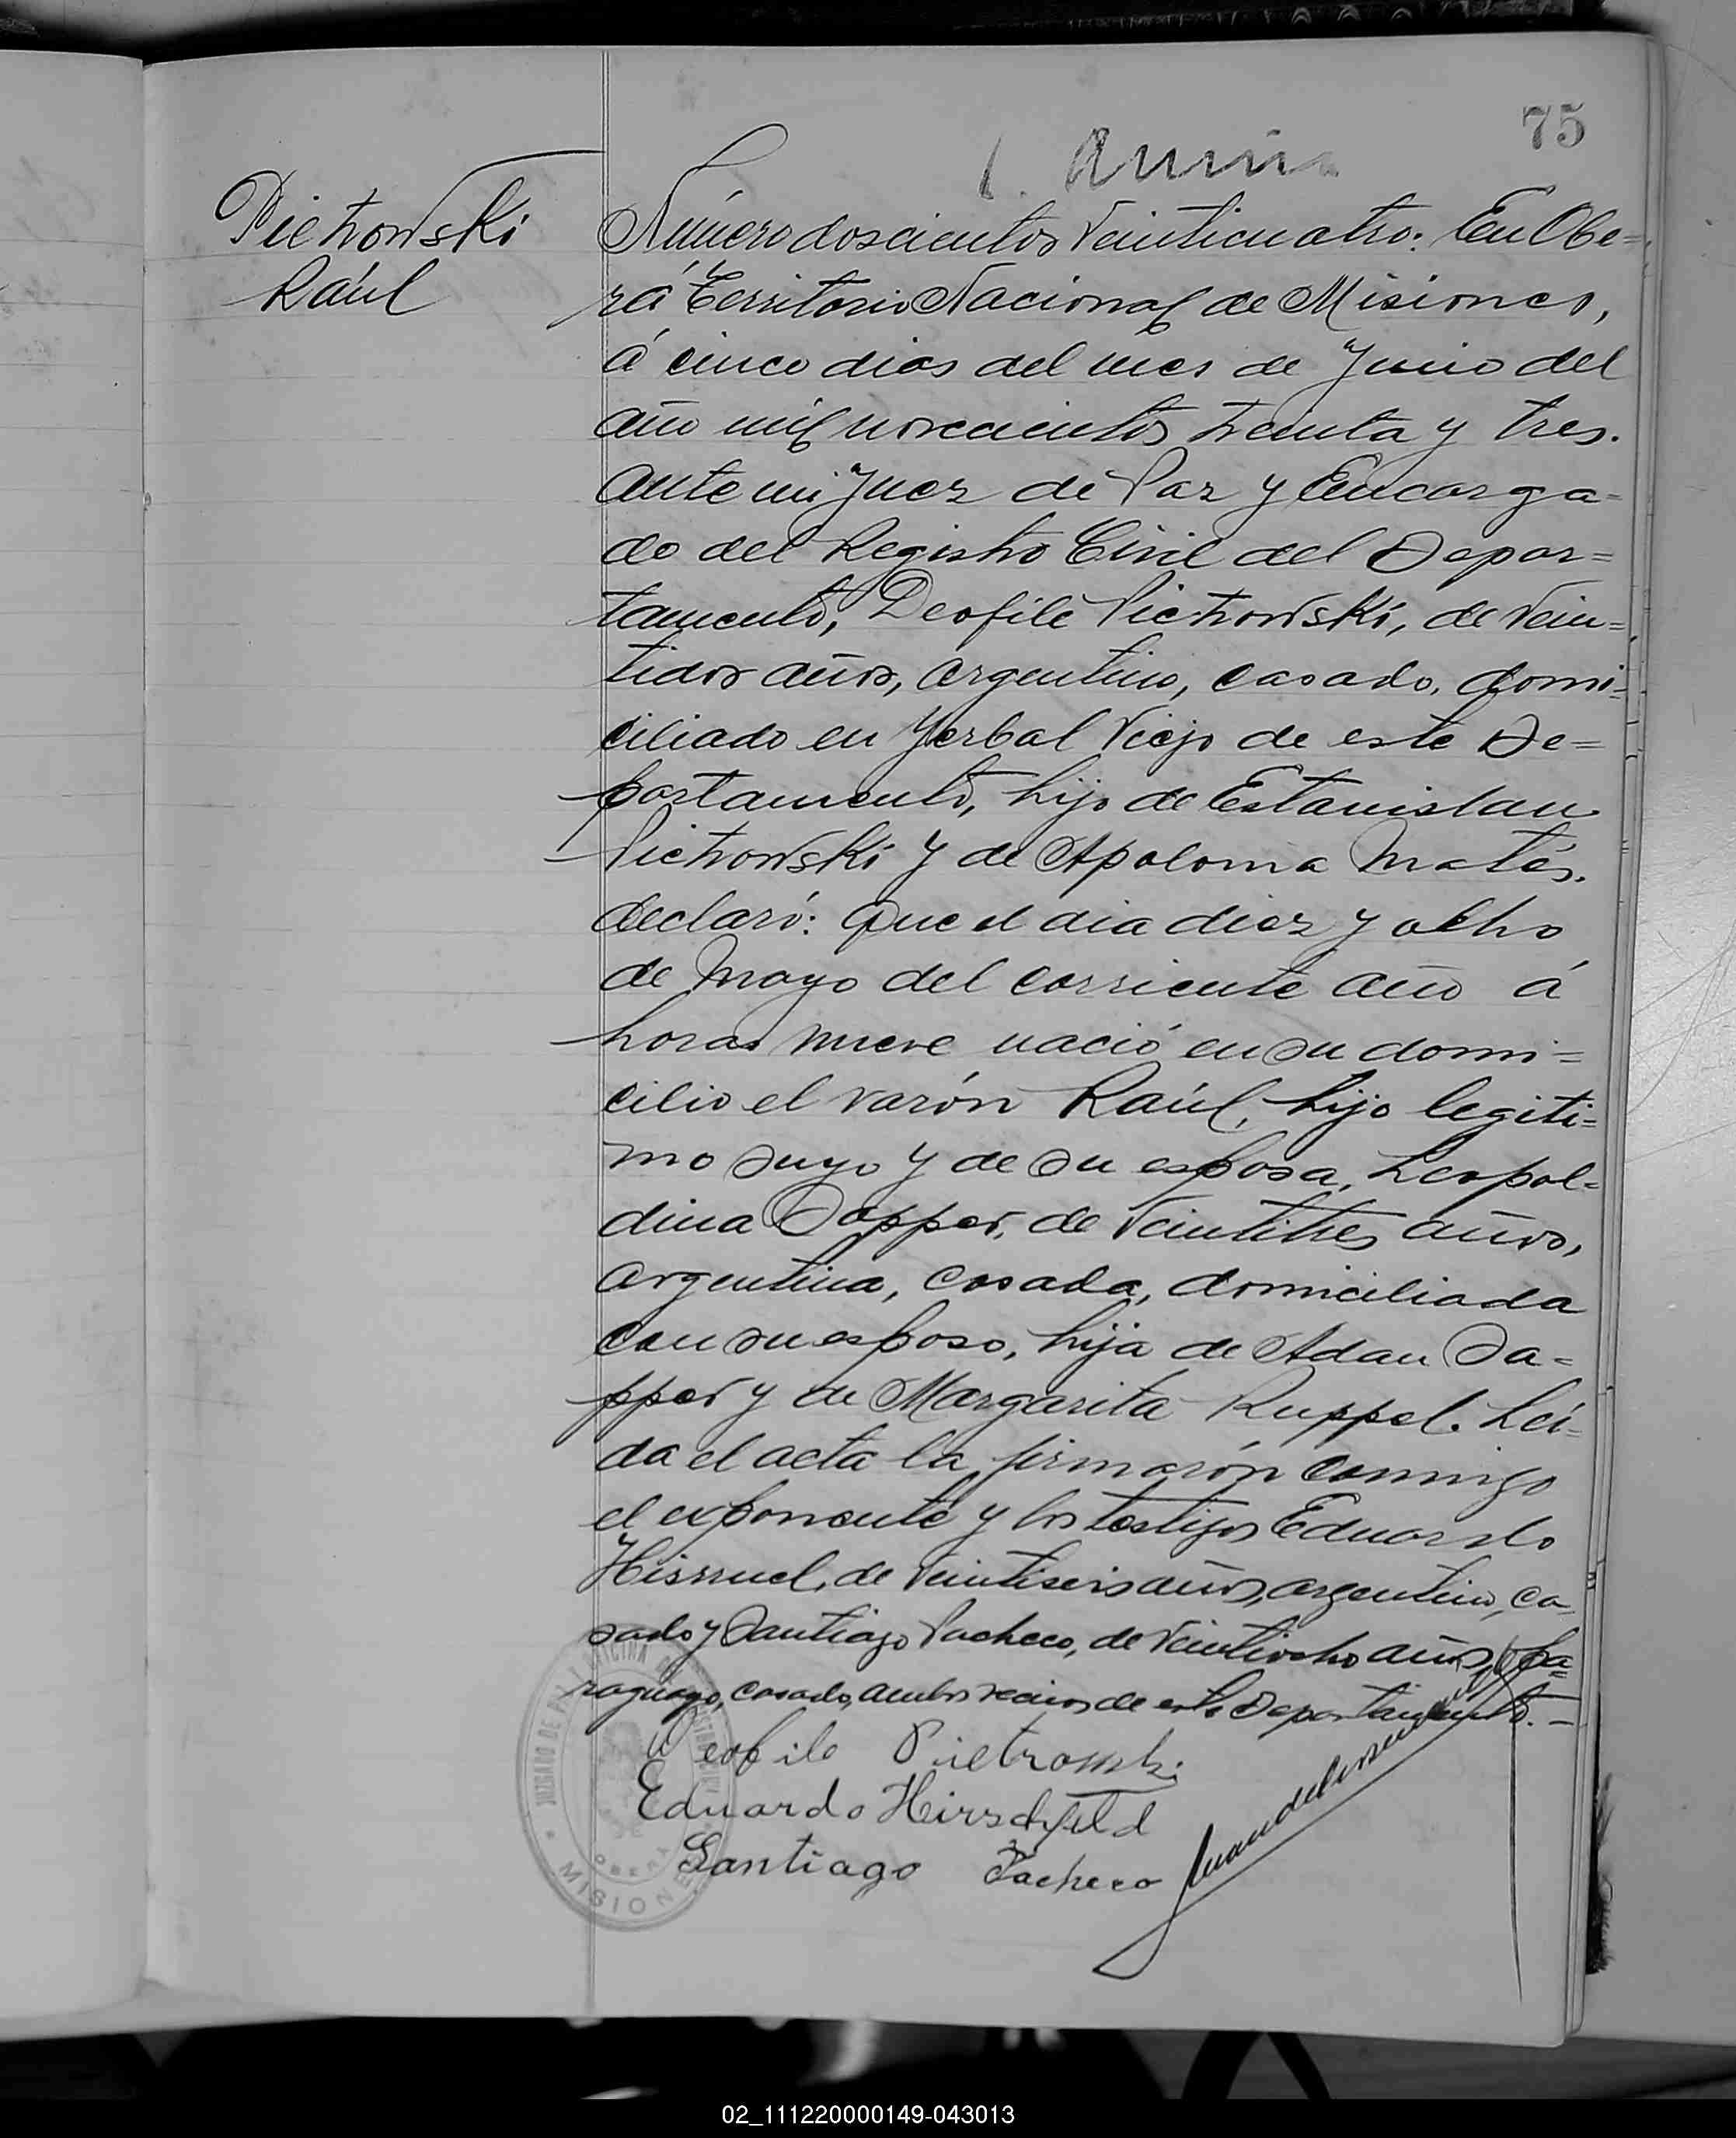 75
Pietrowski
Raúl
Número doscientos veinticuatro: En Obe=
rá Territorio Nacional de Misiones,
á cinco dias del mes de Junio del
año mil novecientos treinta y tres.
ante mi Juez de Paz y Encarga=
do del Registro Civil del Depar=
tamento, Deofile Pietrowski, de vein=
tidos años, argentino, casado, domi=
ciliado en Yerbal Viejo de este De=
partamento, hijo de Estanislau
Pietrowski y de Apolonia Matés.
declaró: Que el dia diez y ocho
de Mayo del corriente año á
horas nueve nació en su domi=
cilio el varón Raúl, hijo legiti=
mo suyo y de su esposa, Leopol=
dina Dapper, de veintitres años,
argentina, casada, domiciliada
con su esposo, hija de Adan Da=
pper y de Margarita Ruppel. Leí=
da el acta la firmarón conmigo
el exponente y los testigos Eduardo
de veintiseis años, argentino, ca
sado y Santiago Pacheco, de veintiocho años, pa=
raguayo, casado, ambos vecinos de este Departamento.—
Deofilo Pietrowski
Eduardo Hirschfeld
Santiago Pacheco
JUZGADO DE PAZ
OBERA
MISIONES
02_111220000149-043013